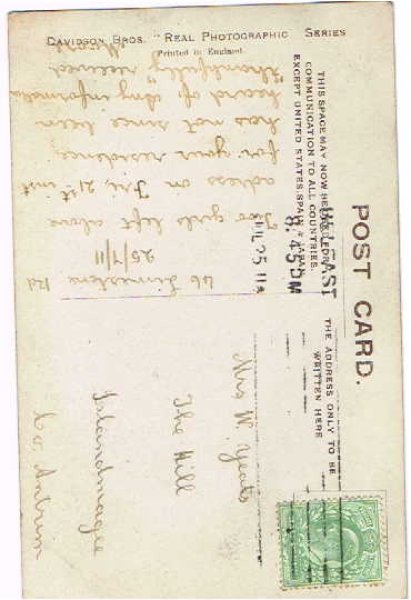 DAVIDSON BROS. "REAL PHOTOGRAPHIC SERIES
(Printed in England
POST CARD.
THIS SPACE MAY NOW BE USED FOR
COMMUNICATION TO ALL COUNTRIES.
EXCEPT UNITED STATES, SPAIN & JAPAN
THE ADDRESS ONLY TO BE
WRITTEN HERE
BELFAST
8.45 PM
JUL 25 11
46 Limestone Rd
25/7/11
Two girls left above
adress on Fri 21st inst
for your residence
has not since been
heard of. Any information
"thankfully" received
Mrs W. Yeats
The Hill
Islandmagee
Co. Antrim